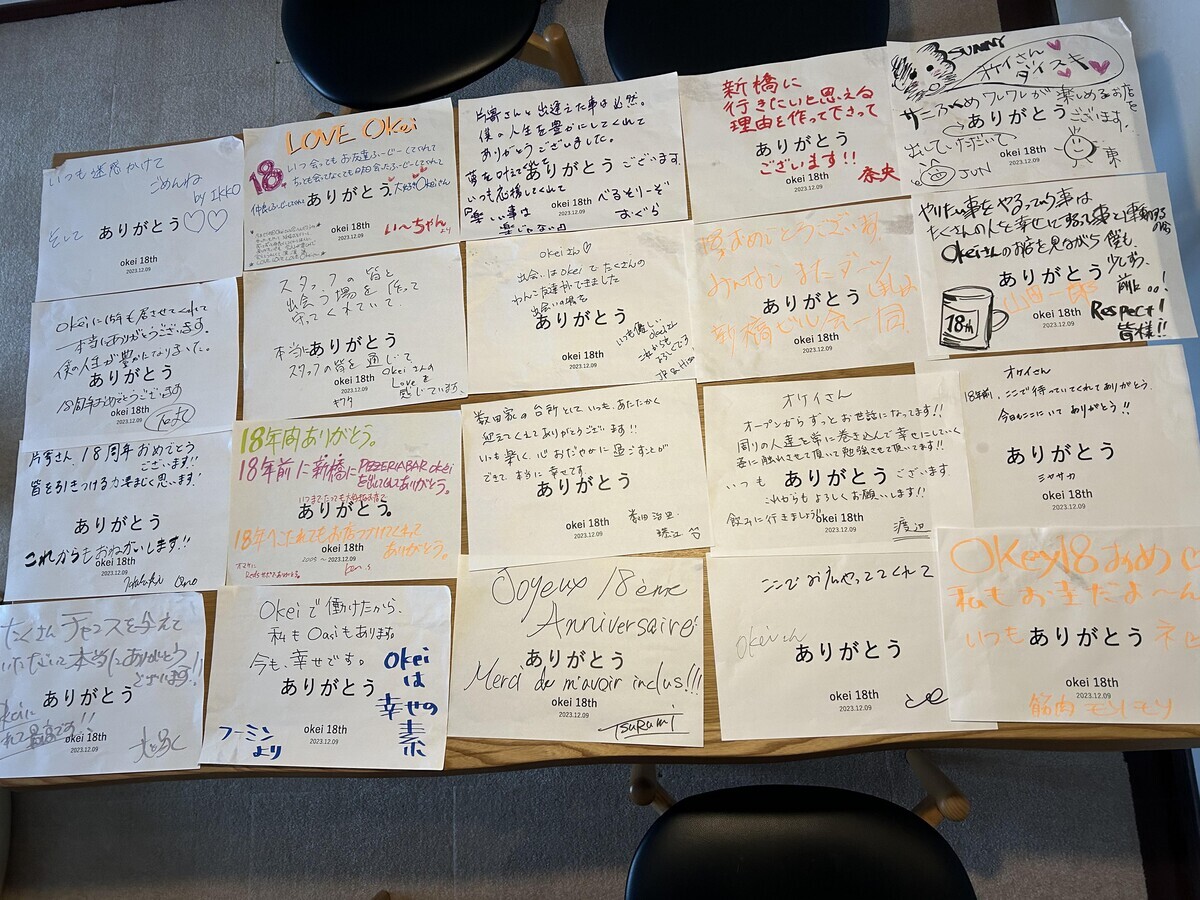 いつも迷惑かけて
ごめんね
by IKKO
そして ありがとう♡♡
okei 18th
2023.12.09
LOVE Okei
18
いつ会ってもお友達
ありがとう。大好きOkeiさん
okei 18th
2023.12.09
い〜ちゃんより
片寄さんと出逢えた事は必然。
僕の人生を豊かにしてくれて
ありがとうございました。
ありがとうございます。
いつも応援してくれて
okei 18th
2023.12.09
べるそりーぞ
おぐら
新橋に
行きたいと思える
理由を作ってくださって
ありがとう
ございます!!
okei 18th
2023.12.09
奈央
SUNNY
オケイさん
ダイスキ
サニーふくめワレワレが楽しめるお店を
ありがとうございます。
出していただいて
JUN
東
okeiに18年も居させてくれて
本当にありがとうございます。
僕の人生が豊かになりました。
ありがとう
18周年おめでとうございます
okei 18th
2023.12.09
スタッフの皆と
出会う場を作って
守ってくれていて..
本当にありがとう
スタッフの皆を通じて
okei 18th
2023.12.09
Okeiさんの
Loveを
感じています。
okeiさん♡
出会いはokeiでたくさんの
わんこ友達ができました
出会いの場を
ありがとう
okei 18th
2023.12.09
いつも優しい
okeiさん
これからも
よろしくです
おめでとうございます。
みんなしまたダーツ
ありがとう
新橋ビル会一同
okei 18th
2023.12.09
やりたい事をやるっていう事は
たくさんの人を幸せにするって事と連動するのね
Okeiさんのお店を見ながら僕も、
ありがとう
少しずつ
前に..!
okei 18th
2023.12.09
Respect!
皆様!!
18th
片寄さん、18周年おめでとう
ございます!!
皆を引きつける力凄まじく思います!
ありがとう
これからもおねがいします!!
okei 18th
2023.12.09
18年間ありがとう。
18年前に新橋にPIZZERIA BAR okei
を出してくれてありがとう。
いつまでたっても
ありがとう。
18年へこたれてもお店つづけてくれて
ありがとう。
okei 18th
2005 〜 2023.12.09
数田家の台所として、いつも、あたたかく
迎えてくれてありがとうございます!!
いつも楽しく、心おだやかに過ごすことが
できて、本当に幸せです。
ありがとう
okei 18th
2023.12.09
オケイさん
オープンからずっとお世話になってます!!
周りの人達を常に巻き込んで幸せにしていく
姿に触れさせて頂いて勉強させて頂いてます!!
いつも ありがとう ございます
これからもよろしくお願いします!!
飲みに行きましょう!!
okei 18th
2023.12.09
渡辺
オケイさん
18年前、ここで待っていてくれてありがとう。
今日もここにいてありがとう!!
ありがとう
ミヤサカ
okei 18th
2023.12.09
たくさんチャンスを与えて
いただいて本当にありがとう
ございます!!
ありがとう
okei 18th
2023.12.09
Okeiで働けたから、
私もOasiもあります。
今も、幸せです。
ありがとう
Okei
は
幸せの
素
フーミン
より
okei 18th
2023.12.09
Joyeux 18ème
Anniversaire!
ありがとう
Merci de m'avoir inclus!!!
okei 18th
2023.12.09
Tsurumi
ここでお店やっててくれて
okeiさん
ありがとう
okei 18th
2023.12.09
Okey18おめ
私もお金だよ〜ん
いつも ありがとう
okei 18th
2023.12.09
筋肉モリモリ